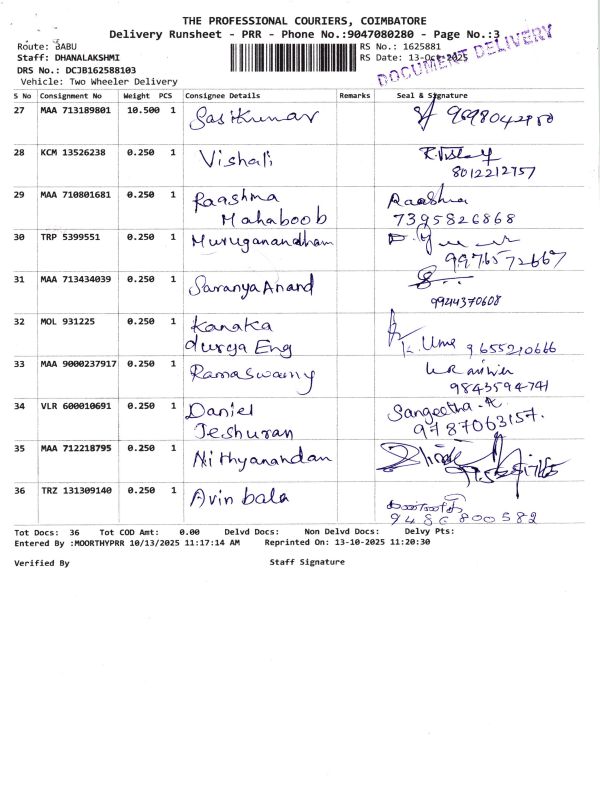 THE PROFESSIONAL COURIERS, COIMBATORE
Delivery Runsheet - PRR - Phone No.:9047080280 - Page No.:3
Route: BABU
RS No.: 1625881
Staff: DHANALAKSHMI
RS Date: 13-Oct-2025
DOCUMENT DELIVERY
DRS No.: DCJB162588103
Vehicle: Two Wheeler Delivery
S No Consignment No Weight PCS Consignee Details Remarks Seal & Signature
27 MAA 713189801 10.500 1 Sasikumar
28 KCM 13526238 0.250 1 Vishali
8012212757
29 MAA 710801681 0.250 1 Raashma Raashma
Mahaboob 7395826868
30 TRP 5399551 0.250 1 Muruganandham
9976572667
31 MAA 713434039 0.250 1 Saranya Anand
9944370608
32 MOL 931225 0.250 1 Kanaka
durga Eng K. Uma 9655210666
33 MAA 9000237917 0.250 1 Ramaswamy
9843594741
34 VLR 600010691 0.250 1 Daniel Sangeetha
Jeshuran 9787063157.
35 MAA 712218795 0.250 1 Nithyanandan
36 TRZ 131309140 0.250 1 Avin bala
9486800582
Tot Docs: 36 Tot COD Amt: 0.00 Delvd Docs: Non Delvd Docs: Delvy Pts:
Entered By :MOORTHYPRR 10/13/2025 11:17:14 AM Reprinted On: 13-10-2025 11:20:30
Verified By Staff Signature